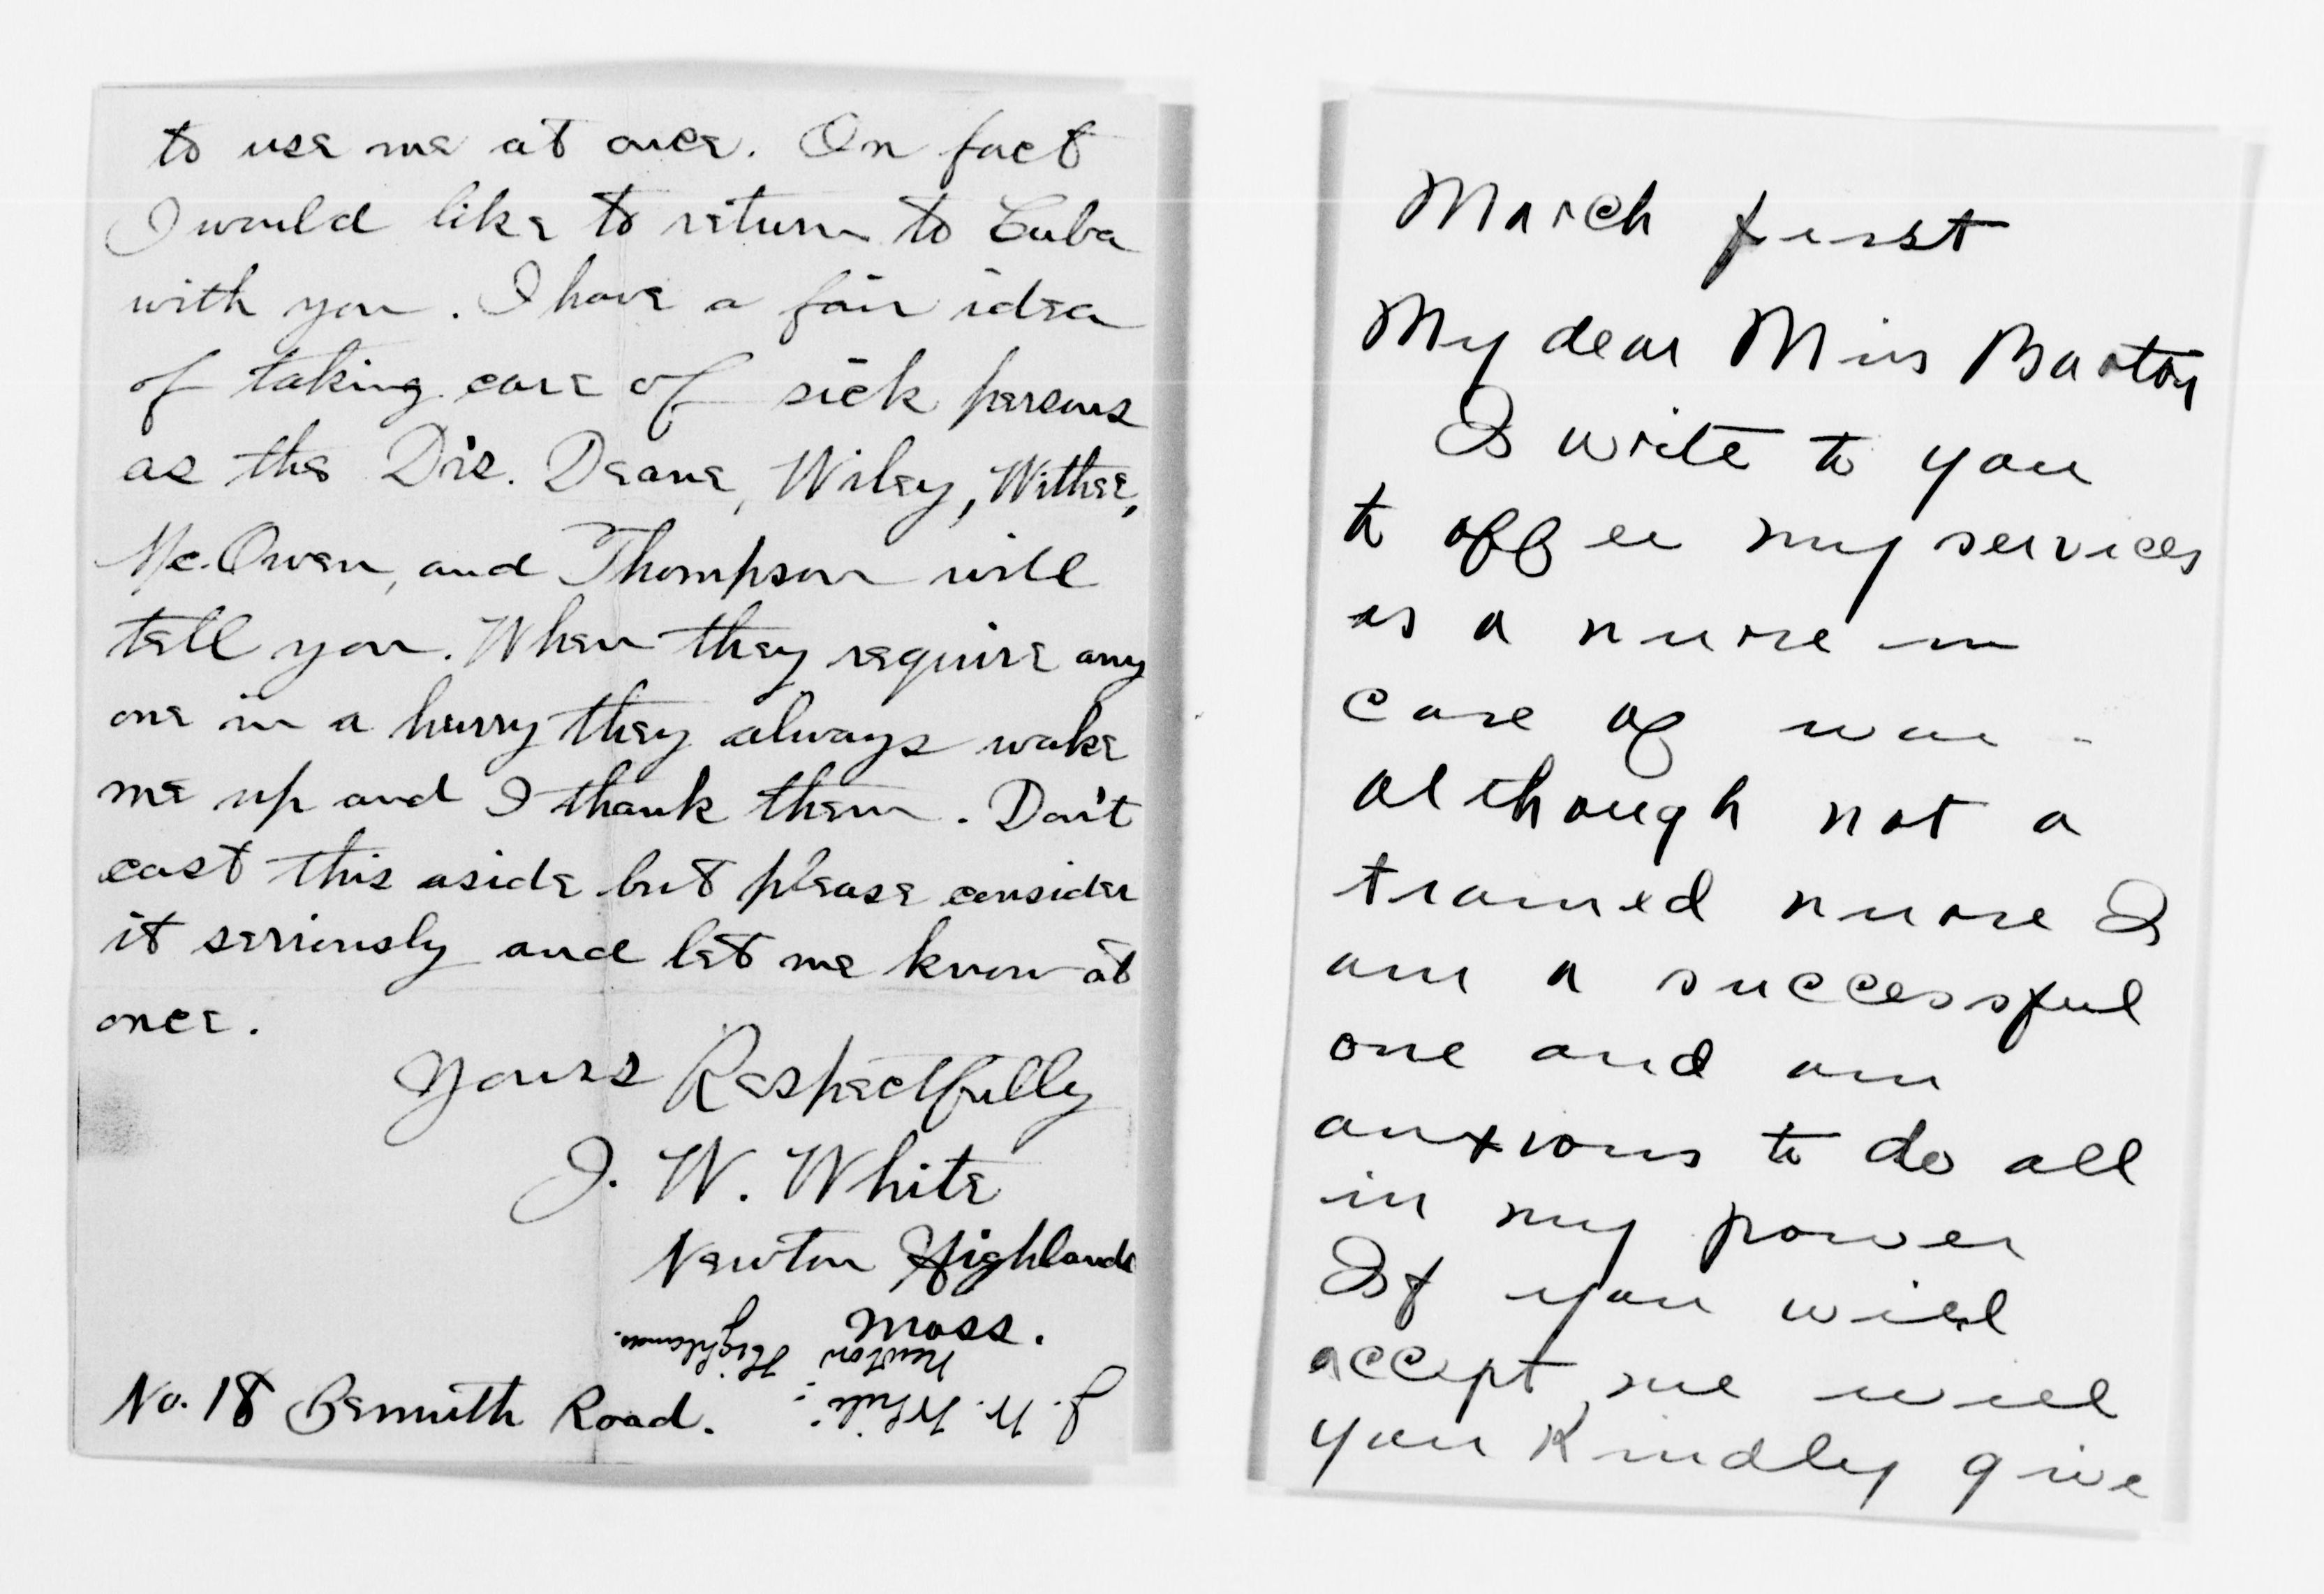 to use me at once. In fact
I would like to return to Cuba
with you. I have a fair idea
of taking care of sick persons
as the Drs. Deane, Wiley, Withee,
Mc.Owen, and Thompson will
tell you. When they require any
one in a hurry they always wake
me up and I thank them. Don't
cast this aside but please consider
it seriously and let me know at
once.
Yours Respectfully
J. W. White
Newton Highlands
Mass.
No. 18 Road.
J. W. White:
Newton
Highlands.
March first
My dear Miss Barton
I write to you
to offer my services
as a nurse in
case of war -
although not a
trained nurse I
am a successful
one and am
anxious to do all
in my power
If you will
accept me will
you kindly give